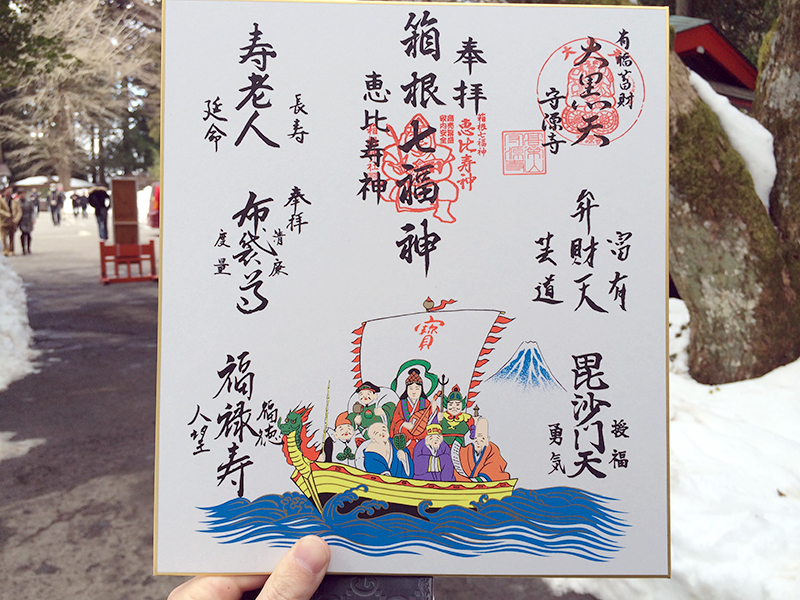 有福蓄財
大黒天
守源寺
弁財天
富有
芸道
毘沙門天
授福
勇気
奉拝
箱根七福神
恵比寿神
箱根七福神
恵比寿神
商売繁盛
家内安全
寿老人
長寿
延命
奉拝
布袋尊
清廉
度量
福禄寿
福徳
人望
寶